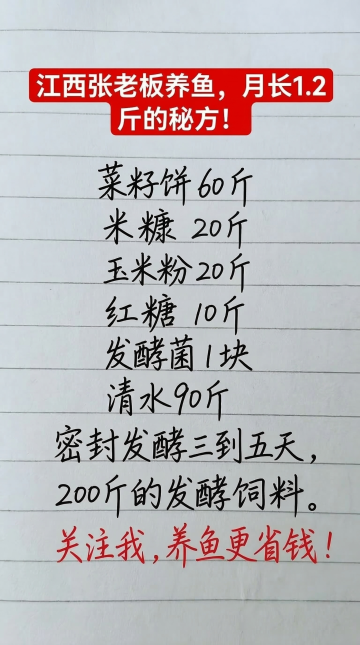 江西张老板养鱼，月长1.2
斤的秘方！
菜籽饼60斤
米糠 20斤
玉米粉20斤
红糖 10斤
发酵菌1块
清水90斤
密封发酵三到五天，
200斤的发酵饲料。
关注我，养鱼更省钱！